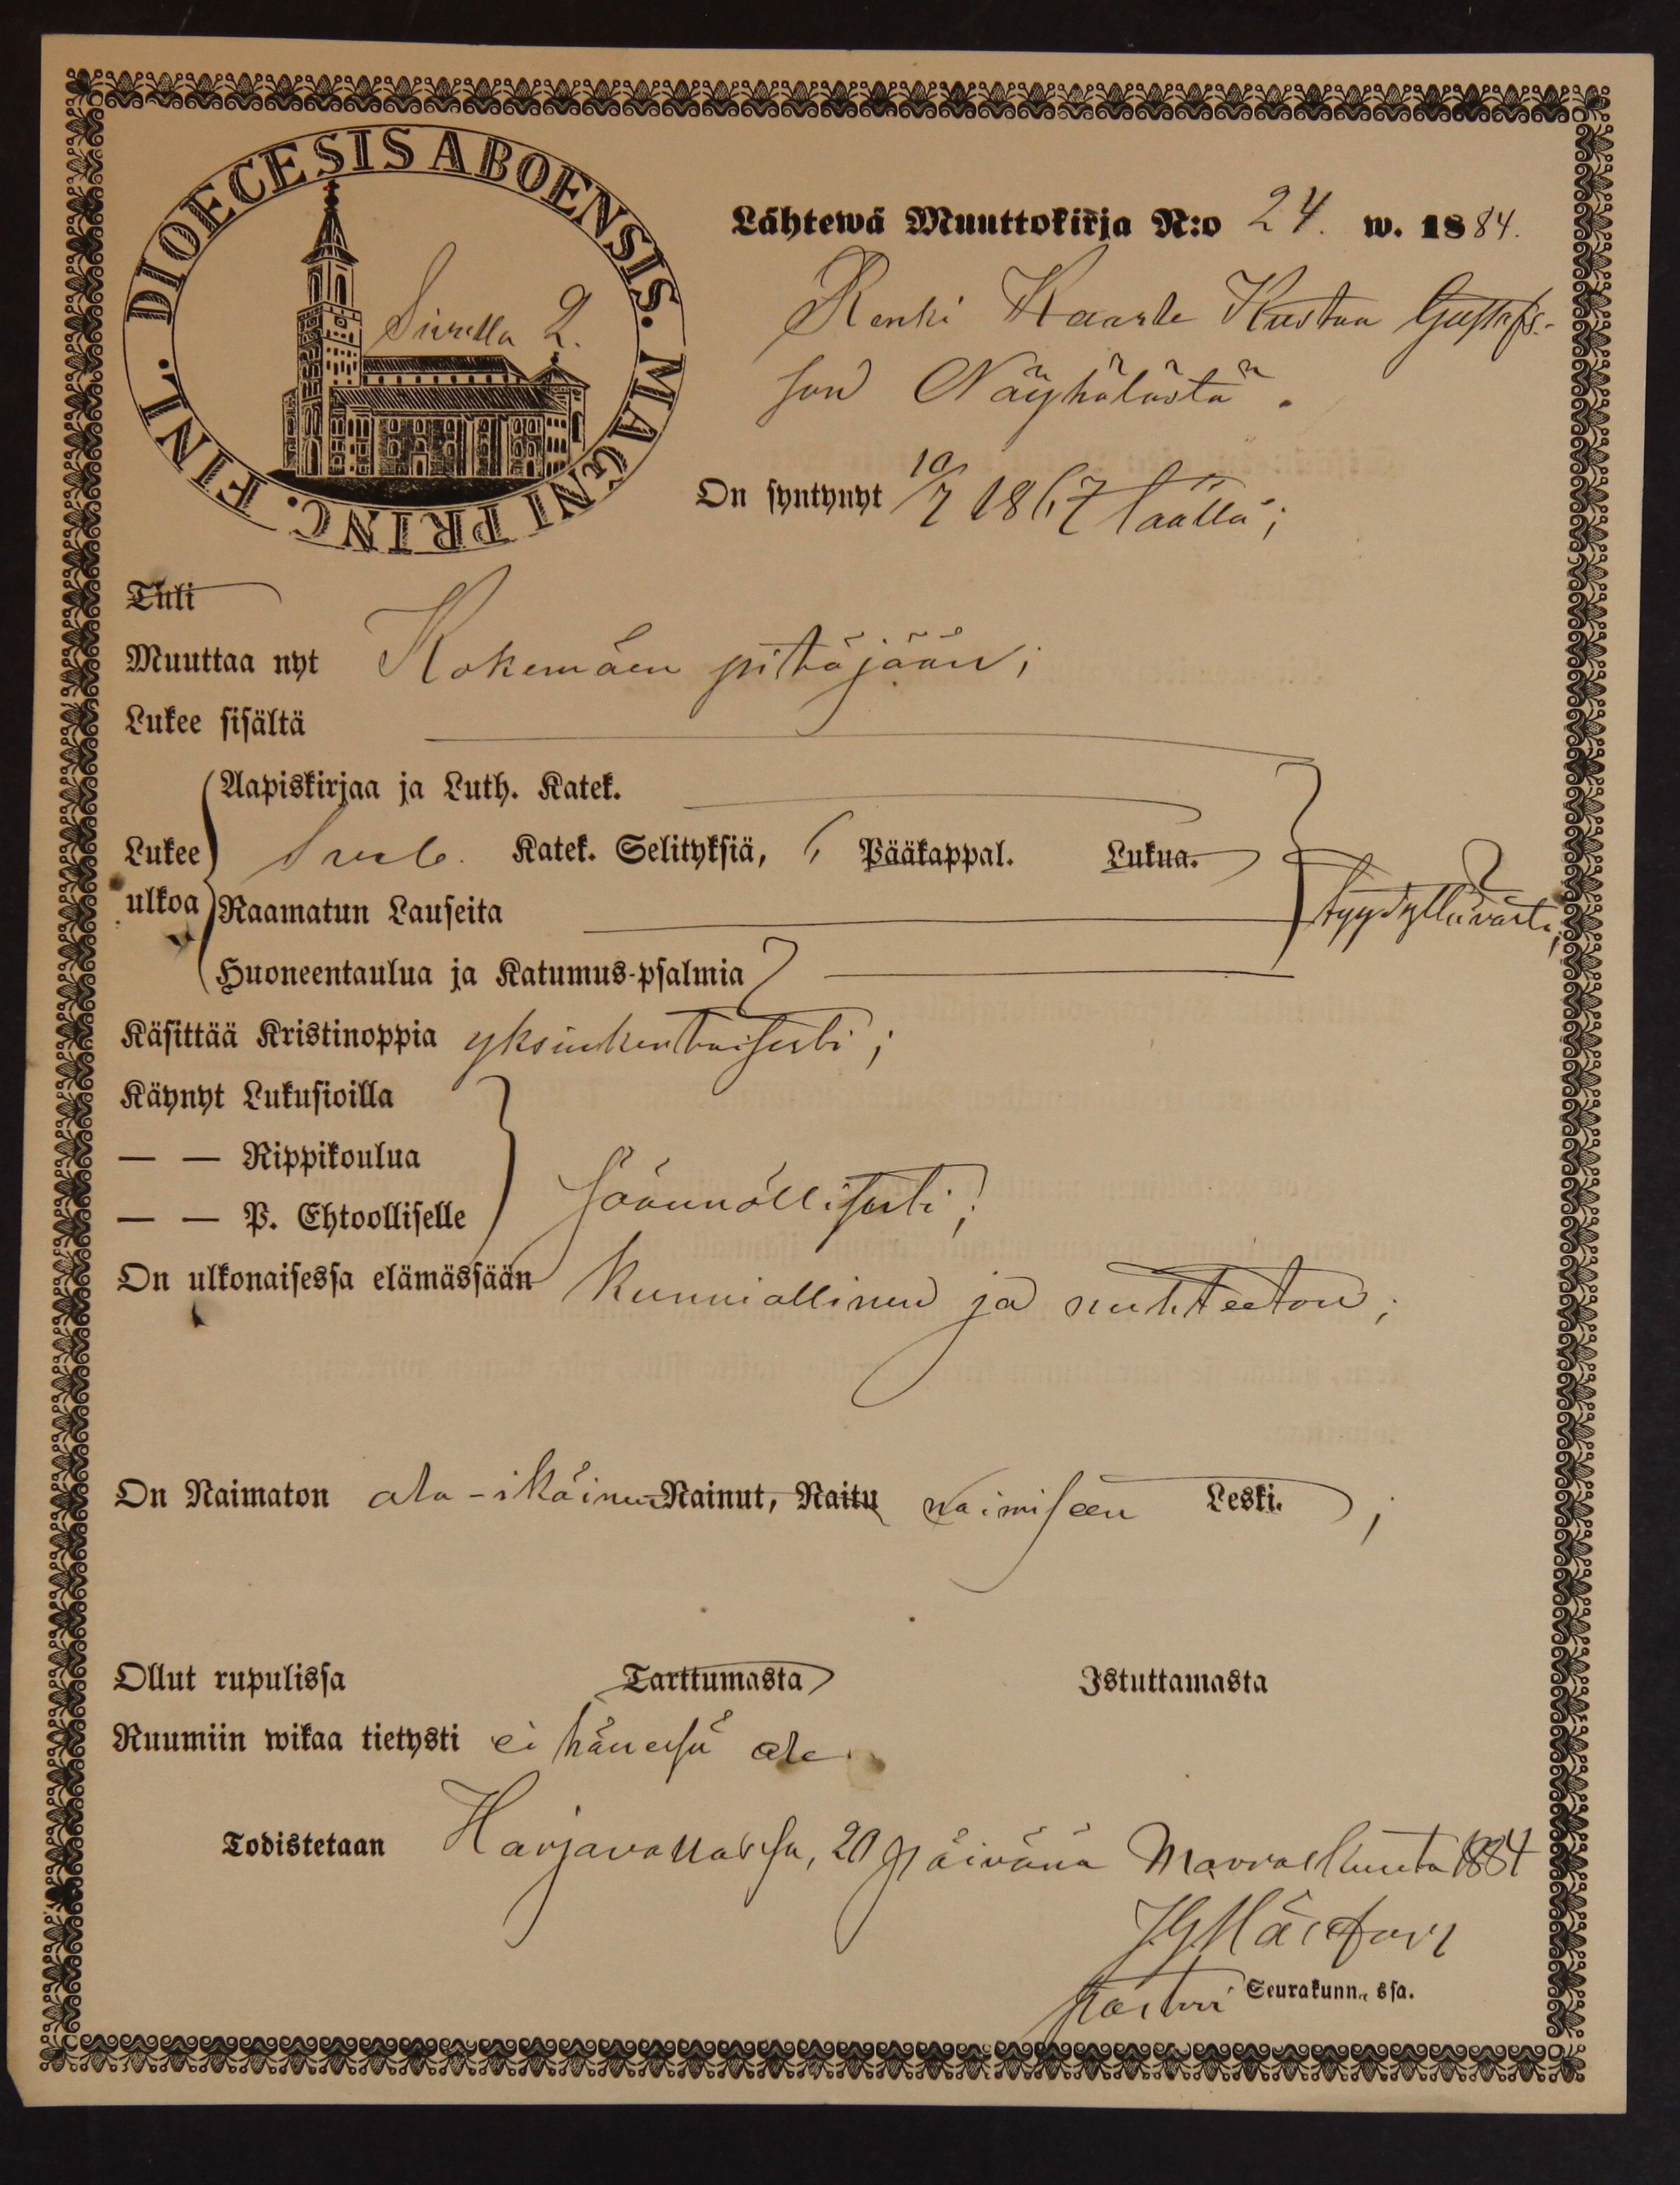 DIOECESIS ABOENSIS. MAGNI PRINC. FINL.
Sivulla 2.
Lähtewä Muuttokirja N:o 24. w. 1884.
Renki Kaarle Kustaa Gustafs-
son Näyhälästä.
On syntynyt 10/7 1867 täällä;
Tuli
Muuttaa nyt Kokemäen pitäjään;
Lukee sisältä
Aapiskirjaa ja Luth. Katek.
Lukee Katek. Selityksiä, Pääkappal. Lukua.
ulkoa Raamatun Lauseita tyydyttävästi;
Huoneentaulua ja Katumus-psalmia
Käsittää Kristinoppia yksinkertaisesti;
Käynyt Lukusioilla
— — Rippikoulua
— — P. Ehtoolliselle säännöllisesti;
On ulkonaisessa elämässään kunniallinen ja nuhteeton;
On Naimaton ala-ikäinen Nainut, Naitu naimiseen Leski. ;
Ollut rupulissa Tarttumasta Istuttamasta
Ruumiin wikaa tietysti ei hänessä ole
Todistetaan Harjavallassa, 20 päivänä Marraskuuta 1884
Pastori Seurakunn. ssa.